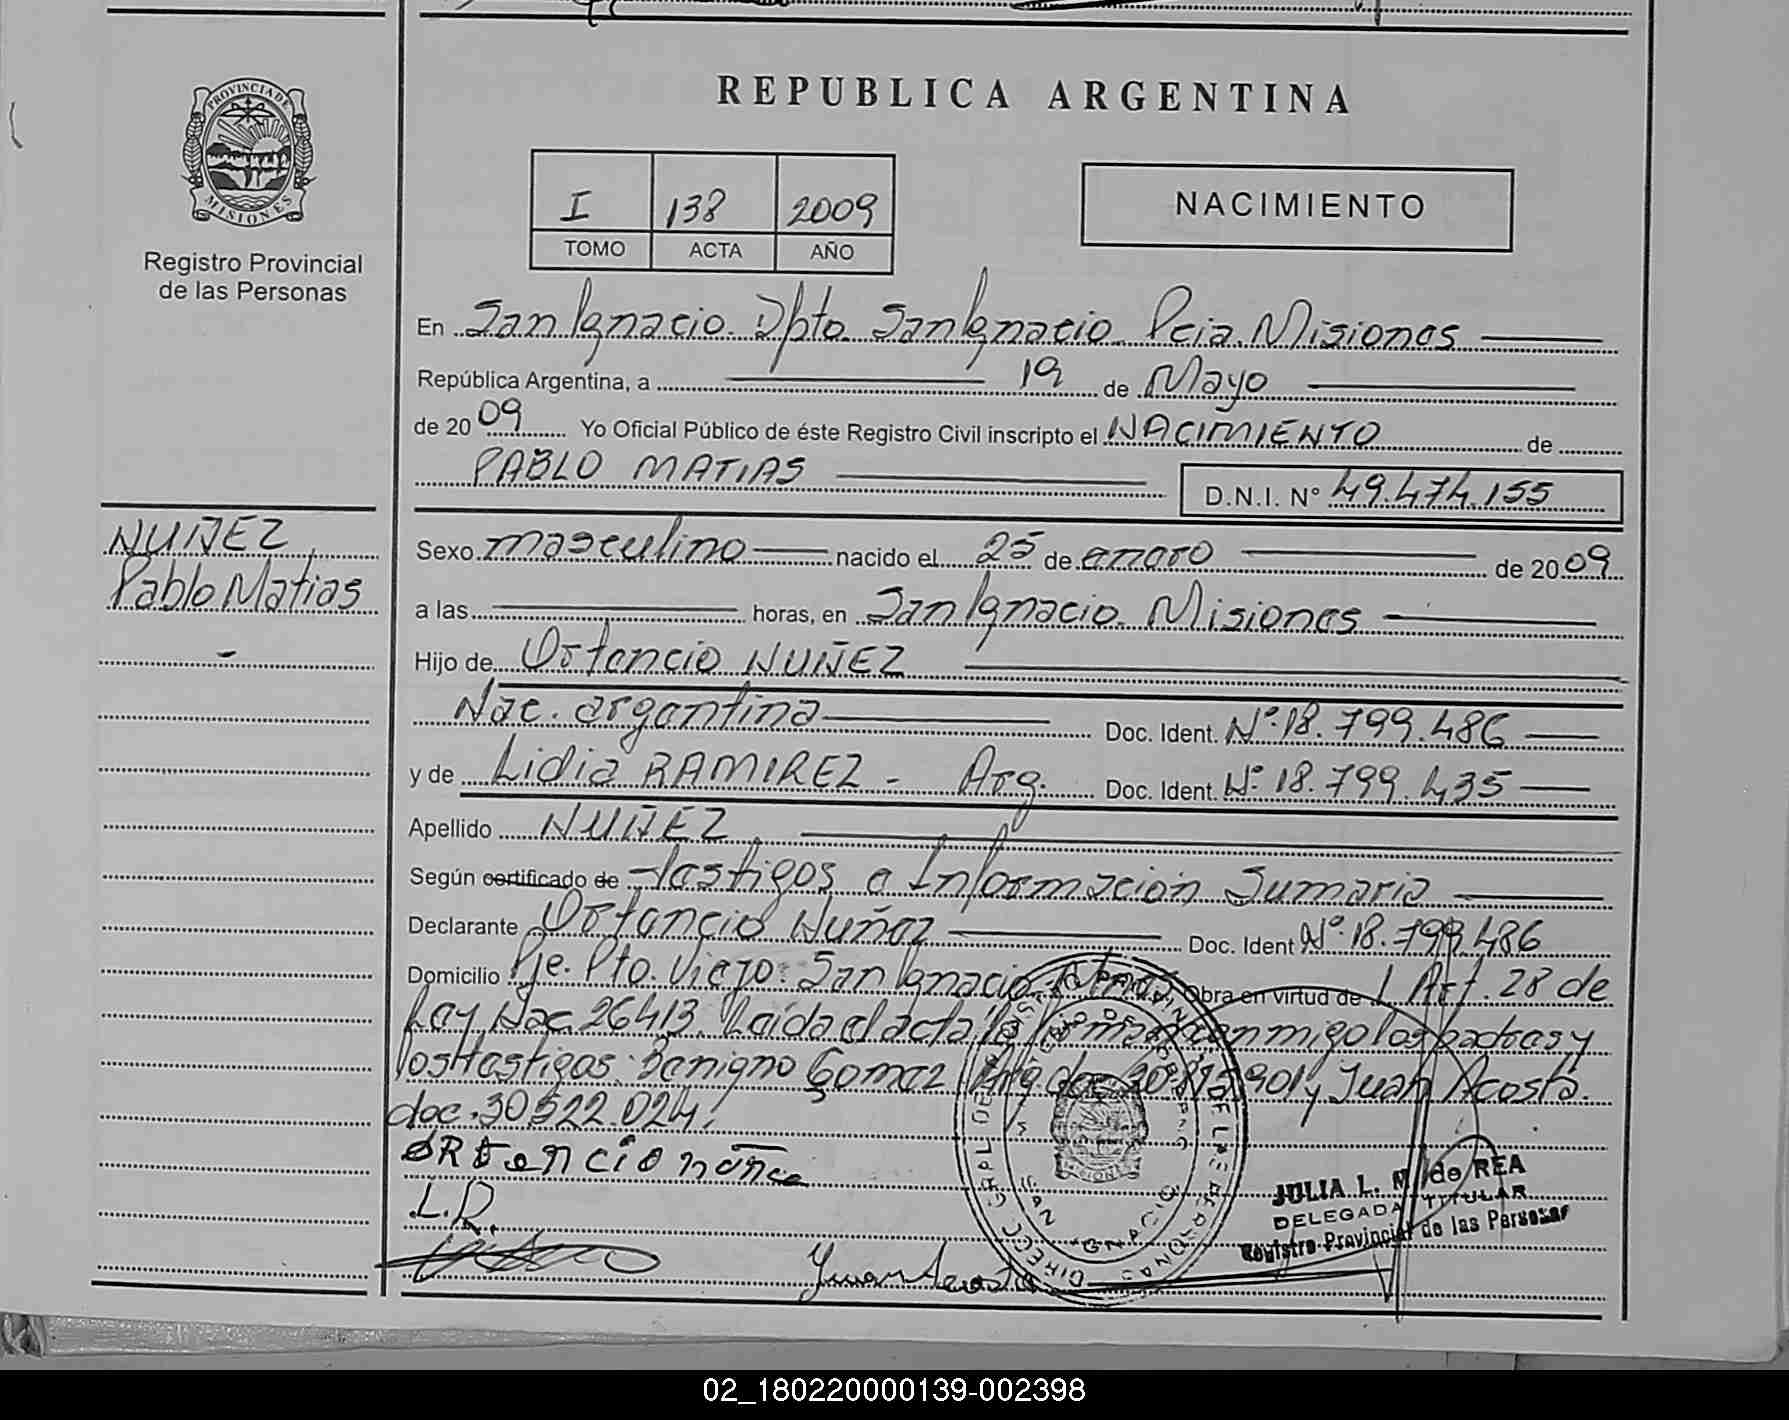 REPUBLICA ARGENTINA
PROVINCIA DE
MISIONES
Registro Provincial
de las Personas
I 138 2009
TOMO ACTA AÑO
NACIMIENTO
En San Ignacio. Dpto. San Ignacio. Pcia. Misiones
República Argentina, a 19 de Mayo
de 2009 Yo Oficial Público de éste Registro Civil inscripto el NACIMIENTO de
PABLO MATIAS D.N.I. N° 49.474.155
NUÑEZ,
Pablo Matias
-
Sexo masculino nacido el 25 de enero de 2009
a las horas, en San Ignacio. Misiones
Hijo de Ortencio NUÑEZ
Nac. argentina Doc. Ident. Nº 18.799.486
y de Lidia RAMIREZ - Arg. Doc. Ident. Nº 18.799.435
Apellido NUÑEZ,
Según certificado de testigos e Información Sumaria
Declarante Ortencio Nuñez Doc. Ident Nº 18.799.486
Domicilio Pje. Pto. Viejo. San Ignacio Obra en virtud de Art. 28 de
Ley Nac. 26413. Leída el acta la conmigo los padres y
los testigos: Benigno Gomez y Juan Acosta.
doc. 30.522.024.
ORtencio núñe
L.R.
Juan Acosta
JULIA L. M. de REA
DELEGADA TITULAR
Registro Provincial de las Personas
02_180220000139-002398